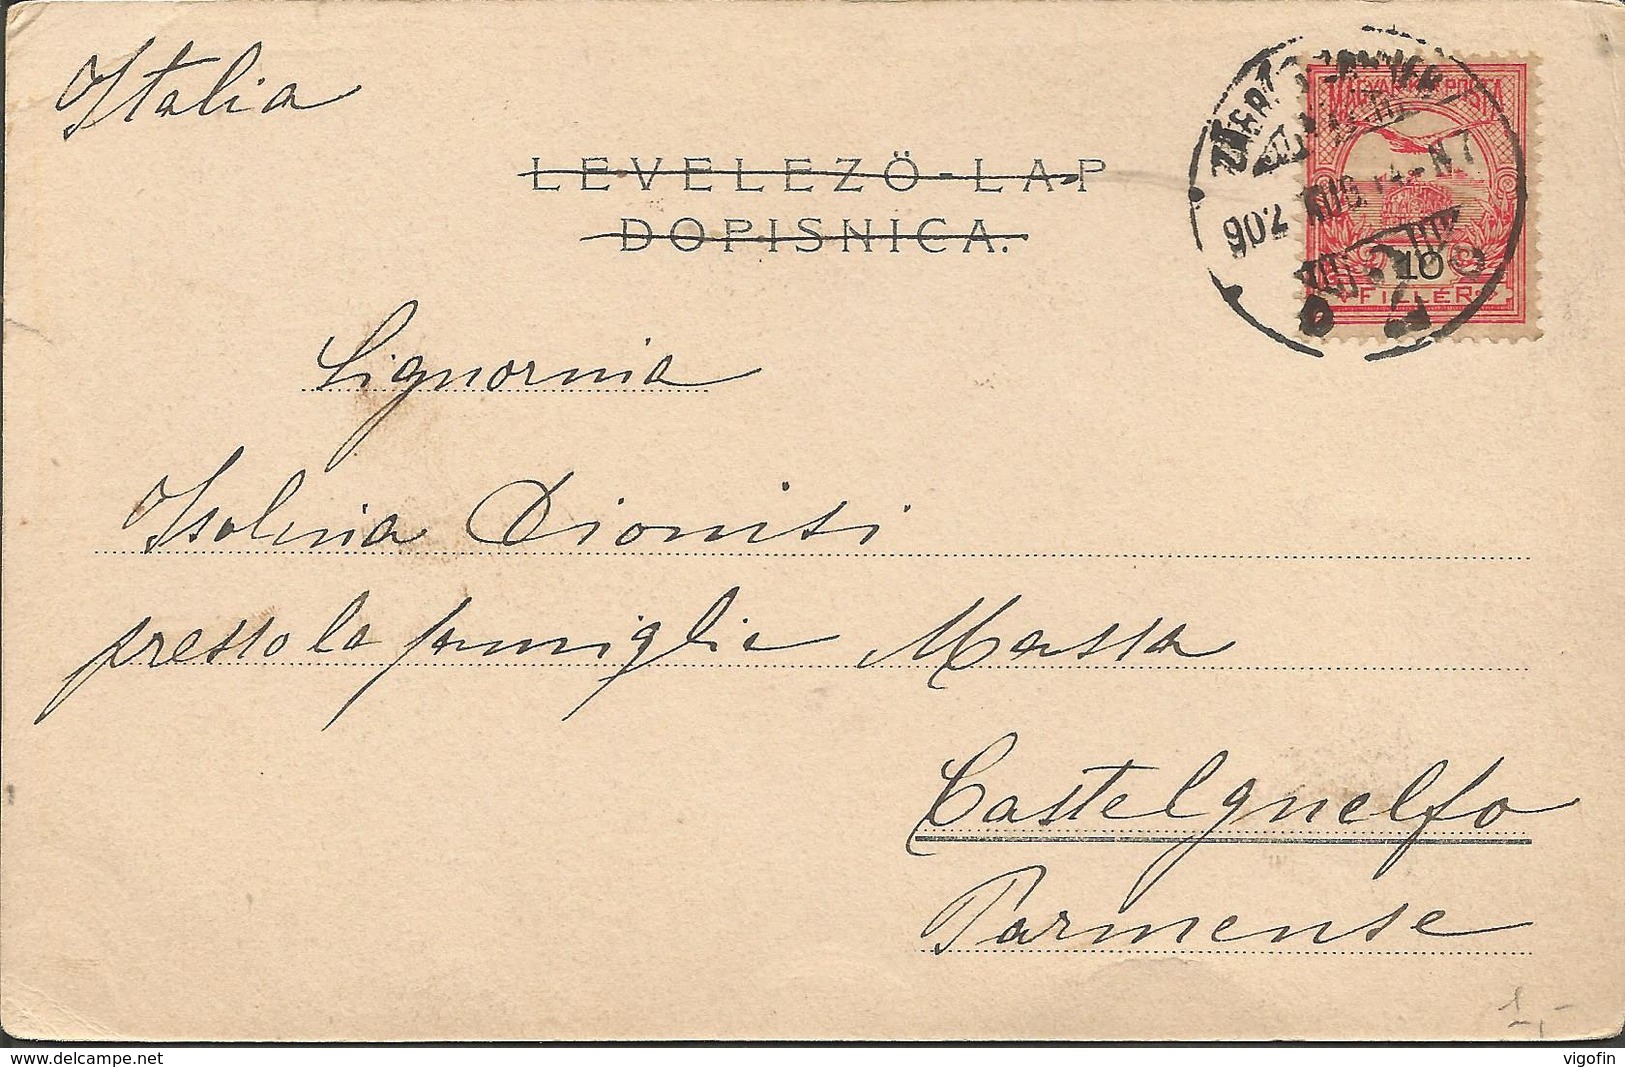 Italia
LEVELEZŐ-LAP
DOPISNICA.
MAGYAR KIR. POSTA
902 AUG 14
10
FILLÉR
Signorina
Isolina Dionisi
presso la famiglia Massa
Castelguelfo
Parmense
1,-
delcampe.net
vigofin